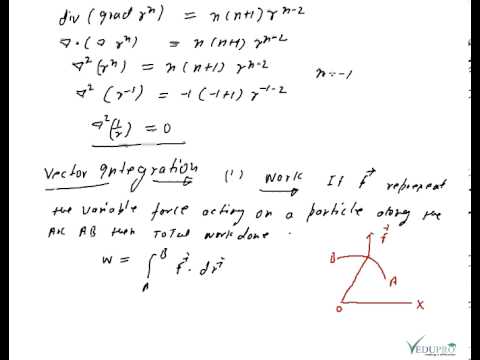 div (grad rⁿ) = n(n+1) rⁿ⁻²
∇·(∇ rⁿ) = n(n+1) rⁿ⁻²
∇²(rⁿ) = n(n+1) rⁿ⁻² n=-1
∇²(r⁻¹) = -1(-1+1) r⁻¹⁻²
∇²(1/r) = 0
Vector Integration (1) Work If f⃗ represent
the variable force acting on a particle along the
Arc AB then Total workdone.
W = ∫_A^B f⃗ · dr⃗
f⃗
B
A
O
X
VEDUPRO